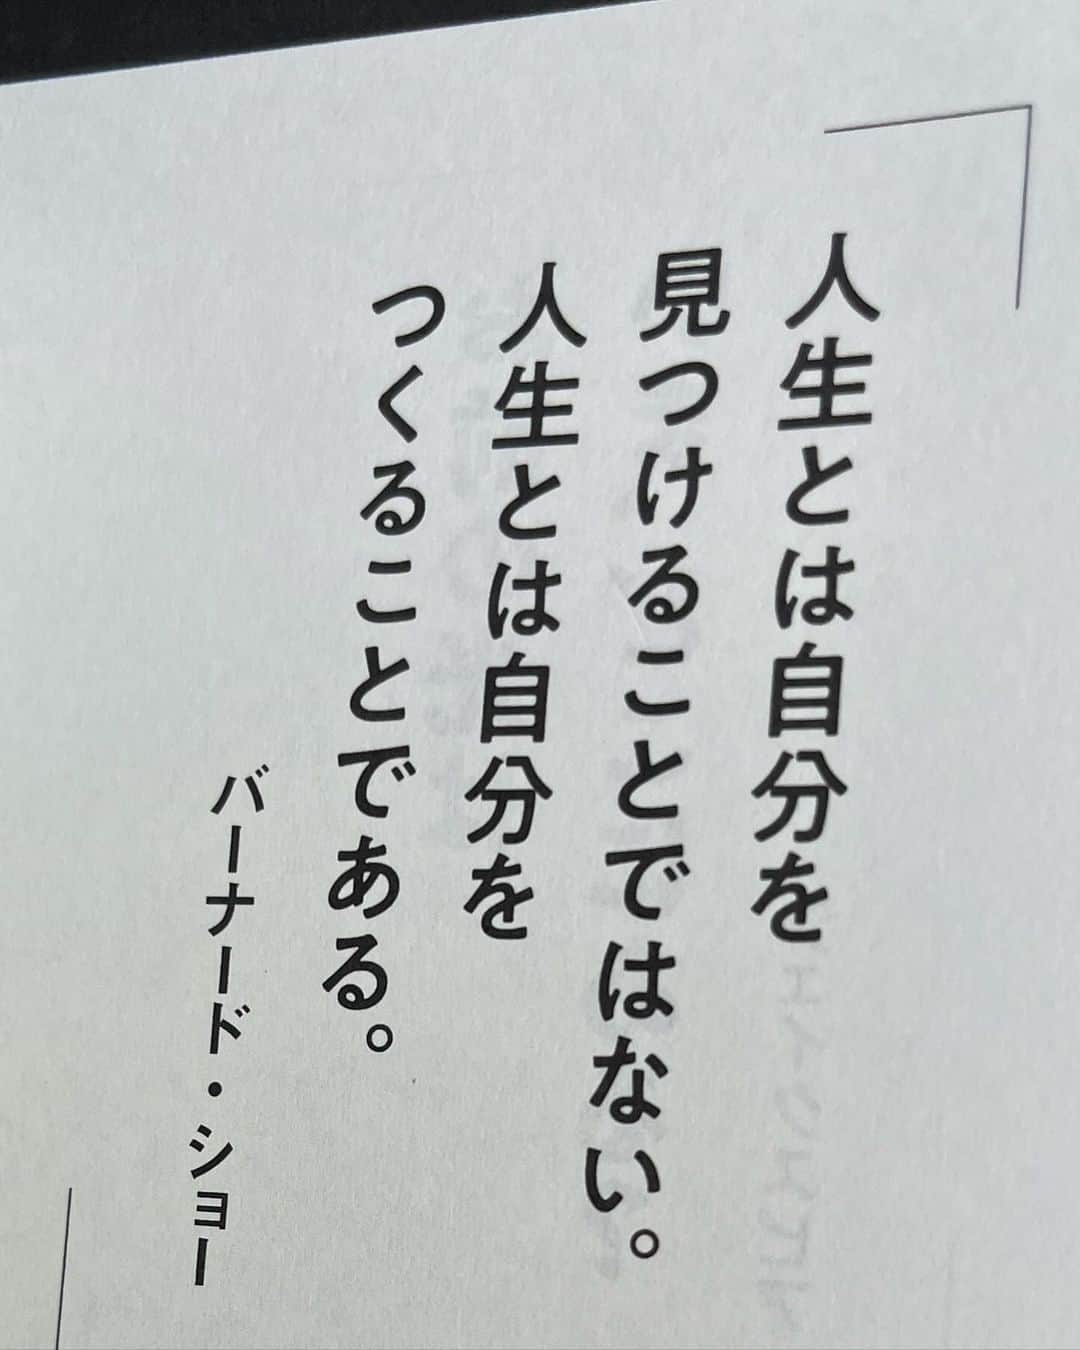 人生とは自分を
見つけることではない。
人生とは自分を
つくることである。
バーナード・ショー